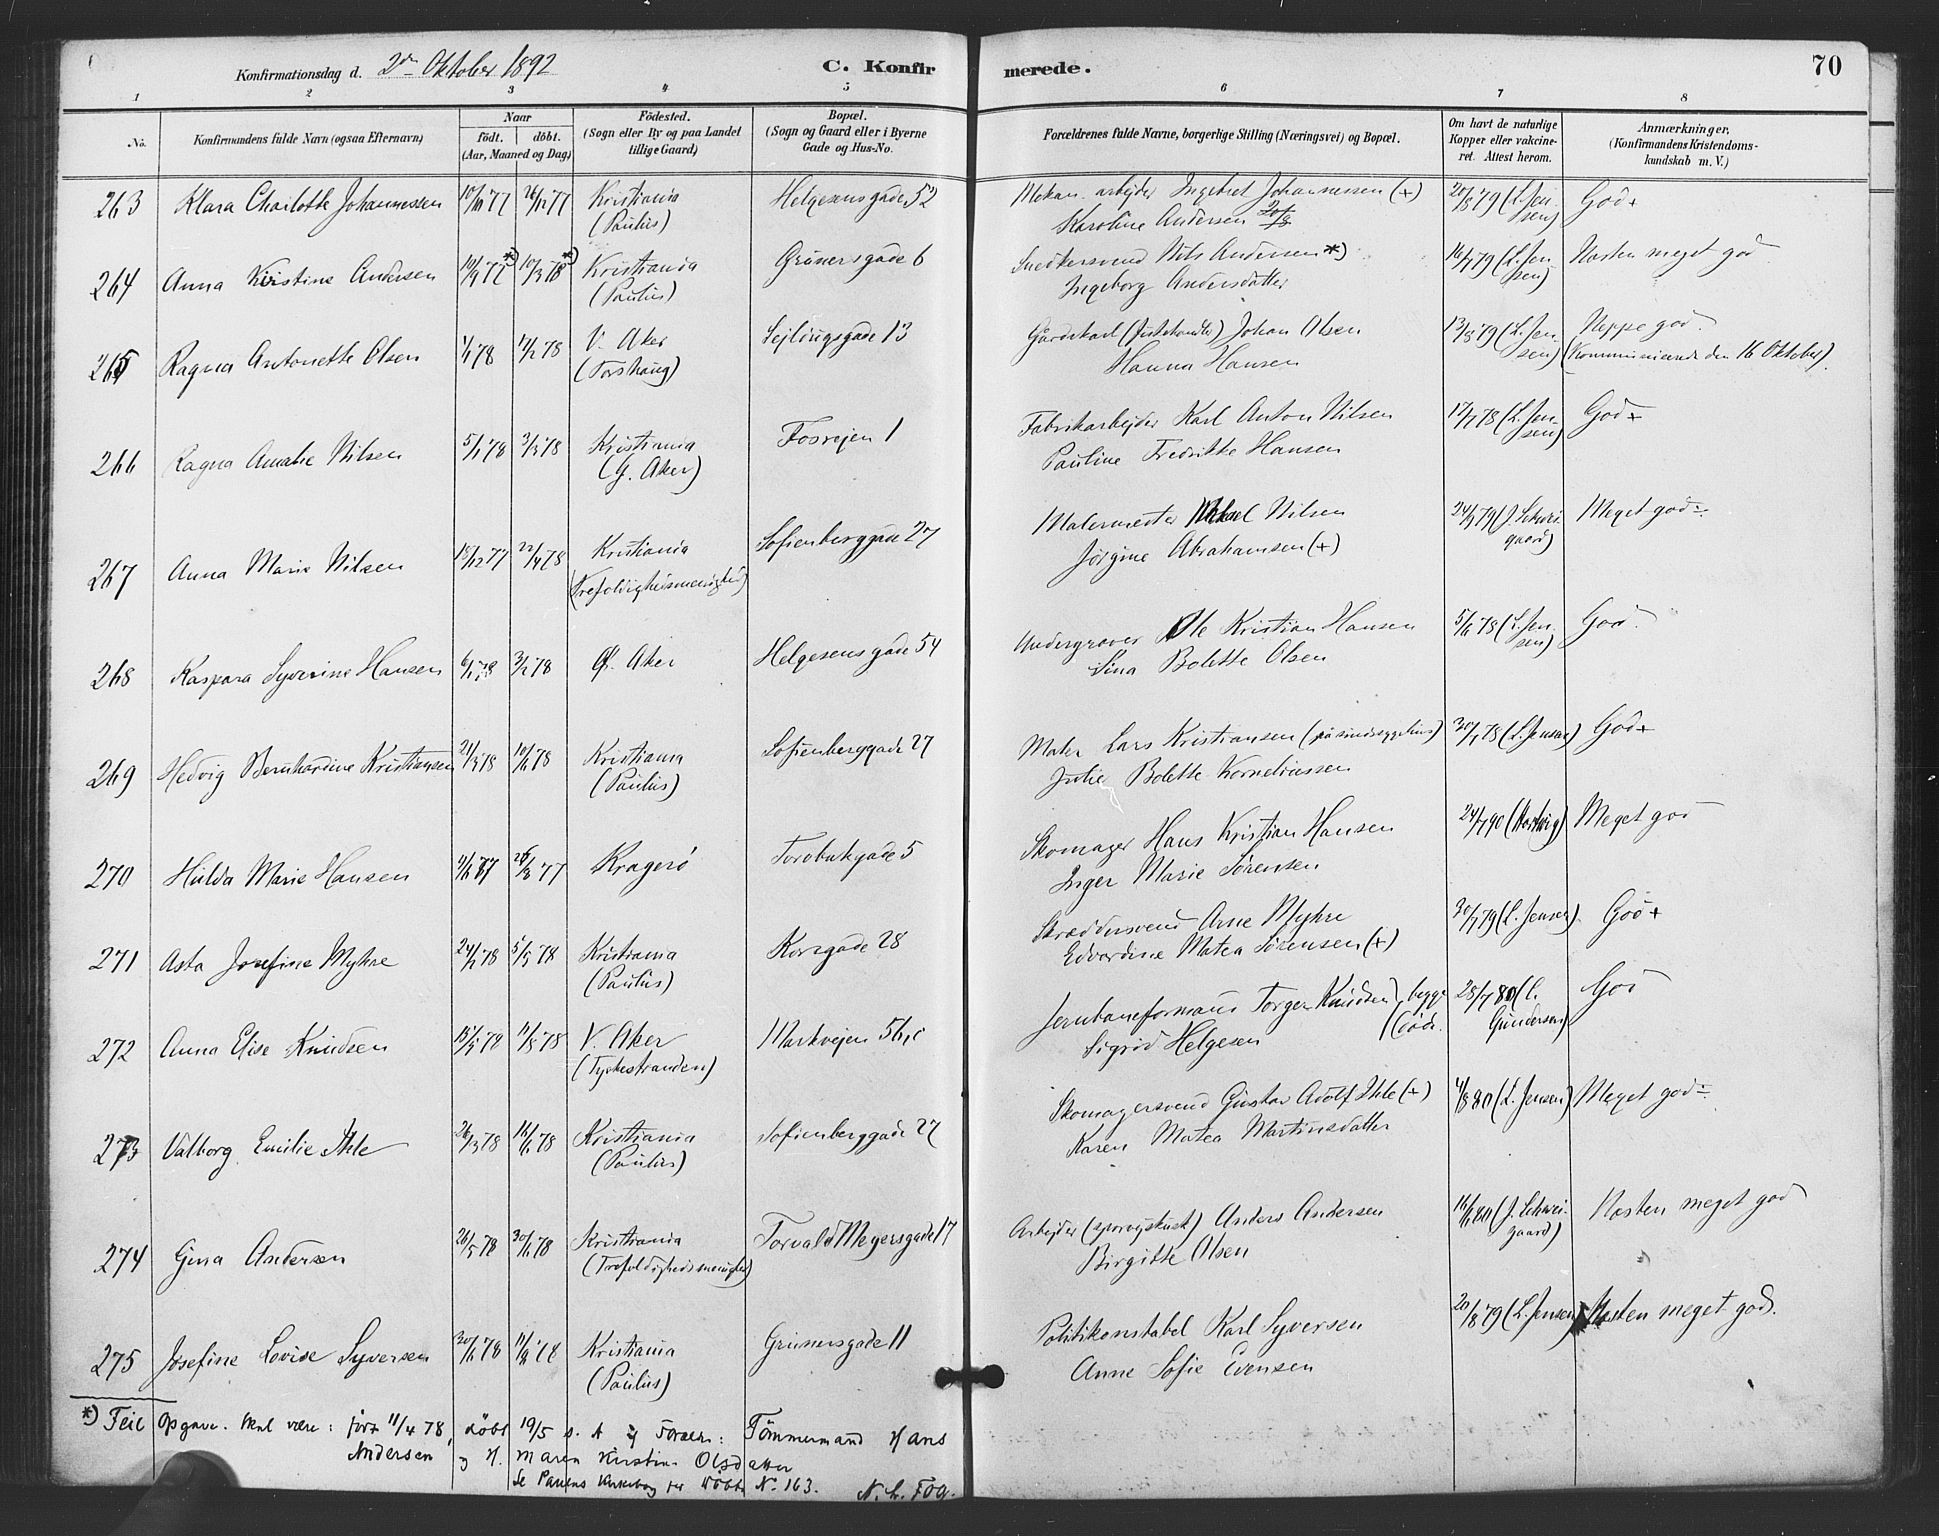 Konfirmationsdag d. 2den Oktober 1892
C. Konfirmerede.
70
1 2 3 4 5 6 7 8
No.
Konfirmandens fulde Navn (ogsaa Efternavn)
Naar
födt. döbt.
(Aar, Maaned og Dag)
Födested.
(Sogn eller By og paa Landet
tillige Gaard)
Bopæl.
(Sogn og Gaard eller i Byerne
Gade og Hus-No.
Forældrenes fulde Navne, borgerlige Stilling (Næringsvei) og Bopæl.
Om havt de naturlige
Kopper eller vakcine-
ret. Attest herom.
Anmærkninger,
(Konfirmandens Kristendoms-
kundskab m. V.)
263 Klara Charlotte Johannessen 10/10 77 26/12 77 Kristiania Helgesensgade 52 Mekan. arbejder Ingebret Johannessen (+) 20/8 79 (L. Jen- God+
(Paulus) Karoline Andersen sen)
264 Anna Kirstine Andersen 10/3 78 *) Kristiania Grünersgade 6 Snedkersvend Nils Andersen *) 16/7 79 (L. Jen- Næsten meget god
(Paulus) Ingeborg Andersdatter sen)
265 Ragna Antonette Olsen 1/1 78 17/2 78 V. Aker Sejldugsgade 13 Gårdskarl Johan Olsen 13/8 79 (L. Jen- Neppe god.
(Torshaug) Hanna Hansen sen) (Kommunicerende den 16 Oktober).
266 Ragna Amalie Nilsen 5/1 78 3/3 78 Kristiania Fosvejen 1 Fabrikarbejder Karl Anton Nilsen 17/7 78 (L. Jen- God+
(G. Aker) Pauline Fredrikke Hansen sen)
267 Anna Marie Nilsen 13/12 77 22/4 78 Kristiania Sofienberggade 27 Malermester Nilsen 24/9 79 (J. Schwei- Meget god÷
(Trefoldighedsmenighed) Jörgine Abrahamsen (+) gaard)
268 Kaspara Syverine Hansen 6/1 78 3/2 78 G. Aker Helgesensgade 54 Undergraver Ole Kristian Hansen 5/6 78 (L. Jen- God.
Lina Bolette Olsen sen)
269 Hedvig Bernhardine Kristiansen 21/3 78 10/6 78 Kristiania Sofienberggade 27 Maler Lars Kristiansen (på sindssygehus) 30/7 78 (L. Jensen) God+
(Paulus) Julie Bolette Korneliussen
270 Hulda Marie Hansen 9/6 77 26/8 77 Kragerö Torvbakgade 5 Skomager Hans Kristian Hansen 24/7 90 (Hartwig) Meget god
Inger Marie Sörensen
271 Asta Josefine Myhre 24/2 78 5/5 78 Kristiania Korsgade 28 Skræddersvend Arne Myhre 30/7 79 (L. Jensen). God+
(Paulus) Edvardine Matea Sörensen (+)
272 Anna Elise Knudsen 11/8 78 V. Aker Markvejen 56, Jernbaneformand Torger Knudsen) begge 28/7 80 (C. God
(Tyskestranden) Sigrid Helgesen (döde. Gundersen)
273 Valborg Emilie Ihle 26/3 78 14/6 78 Kristiania Sofienberggade 27 Skomagersvend Gustav Adolf Ihle (+) 4/8 80 (L. Jensen) Meget god÷
(Paulus) Karen Matea Martinsdatter
274 Gina Andersen 26/5 78 30/6 78 Kristiania Torvald Meyersgade 17 Arbejder (sporvejskusk) Anders Andersen 16/6 80 (J. Schwei- Næsten meget god
(Trefoldighedsmenighed) Birgitte Olsen gaard)
275 Josefine Lovise Syversen 30/6 78 11/8 78 Kristiania Grünersgade 11 Politikonstabel Karl Syversen 20/8 79 (L. Jensen) Næsten meget god.
(Paulus) Anne Sofie Evensen
*) Feil Opgave. Skal være: født 11/4 78, døbt 19/5 s. A. og Foræld.: Tømmermand Hans
Andersen og H. Maren Kirstine Olsdatter
Se Paulus Kirkebog for Døbte No. 163. N. L. Fog.